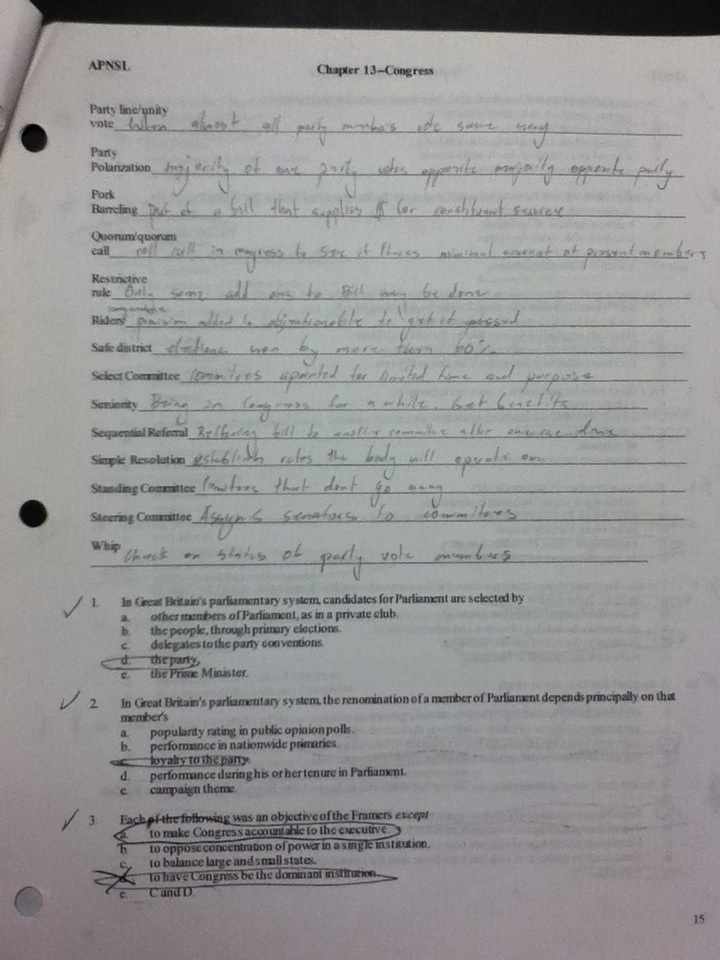 APNSL
Chapter 13–Congress
Party line/unity
vote when almost all party members vote same way
Party
Polarization majority of one party votes opposite majority opposite party
Pork
Barreling part of a bill that supplies $ for constituent services
Quorum/quorum
call roll call in congress to see if theres minimal amount of present members
Restrictive
rule Only some add ons to Bill may be done
Riders provision added to objectionable to get it passed
Safe district elections won by more than 60%
Select Committee committees appointed for limited time and purpose
Seniority Being in Congress for a while, get benefits
Sequential Referral Referring bill to another committee after one is done
Simple Resolution establish rules the body will operate on
Standing Committee that dont go away
Steering Committee Assigns senators to committees
Whip Check on status of party vote members
1. In Great Britain's parliamentary system, candidates for Parliament are selected by
a. other members of Parliament, as in a private club.
b. the people, through primary elections.
c. delegates to the party conventions.
d. the party.
e. the Prime Minister.
2. In Great Britain's parliamentary system, the renomination of a member of Parliament depends principally on that
member's
a. popularity rating in public opinion polls.
b. performance in nationwide primaries.
c. loyalty to the party.
d. performance during his or her tenure in Parliament.
e. campaign theme.
3. Each of the following was an objective of the Framers except
a. to make Congress accountable to the executive.
b. to oppose concentration of power in a single institution.
c. to balance large and small states.
d. to have Congress be the dominant institution.
e. C and D.
15